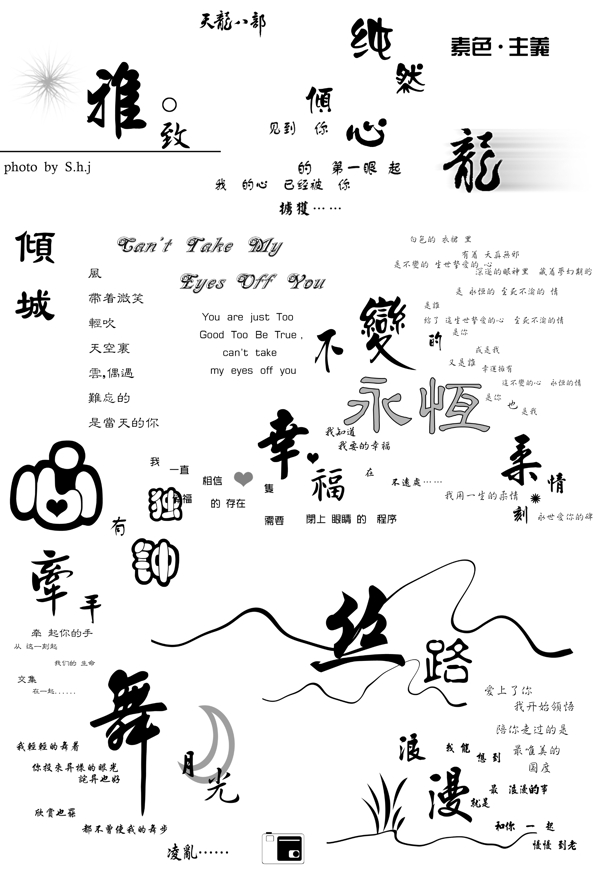 天龍八部
純
然
素色·主義
雅。致
photo by S.h.j
傾
见到 你 心
的 第一眼 起
我 的心 已经被 你
掳獲……
龍
傾
城
Can't Take My
Eyes Off You
You are just Too
Good Too Be True ,
can't take
my eyes off you
風
帶着微笑
輕吹
天空裏
雲,偶遇
難忘的
是當天的你
白色的 衣裙 里
有着 天真無邪
是不變的 生世摯愛的 心
深邃的眼神里 藏着夢幻期的
是 永恒的 至死不渝的 情
是誰
給了 這生世摯愛的心 至死不渝的情
是你
或是我
又是誰 幸運擁有
這不變的心 永恒的情
是你 也
是我
不 變 的
永恆
幸
福
我知道
我要的幸福
在
不遠處……
我 一直 相信
幸福 的 存在
隻
需要 閉上 眼睛 的 程序
心 有 独 钟
柔 情
刻
我用一生的柔情
永世爱你的碑
牽 手
牵 起你的手
从 这一刻起
我们的 生命
文集
在一起......
丝 路
愛上了你
我开始领悟
陪你走过的是
最唯美的
国度
舞
月 光
我輕輕的舞着
你投來异樣的眼光
詫异也好
欣赏也罷
都不曾使我的舞步
凌亂……
浪 漫
我 能 想 到
最 浪漫的事
就是
和你 一 起
慢慢 到老